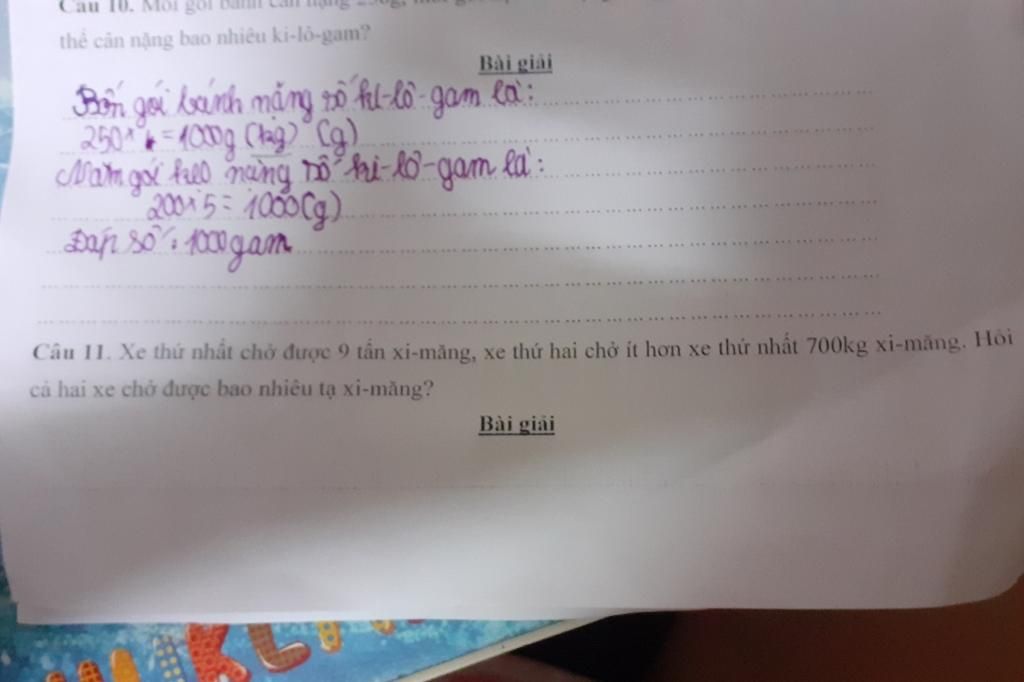 Câu 10. Mỗi gói bánh cân nặng 250g,
thể cân nặng bao nhiêu ki-lô-gam?
Bài giải
Bốn gói bánh nặng số ki-lô-gam là:
250 × 4 = 1000g (kg) (g)
Năm gói kẹo nặng số ki-lô-gam là:
200 × 5 = 1000 (g)
Đáp số: 1000 gam
Câu 11. Xe thứ nhất chở được 9 tấn xi-măng, xe thứ hai chở ít hơn xe thứ nhất 700kg xi-măng. Hỏi
cả hai xe chở được bao nhiêu tạ xi-măng?
Bài giải